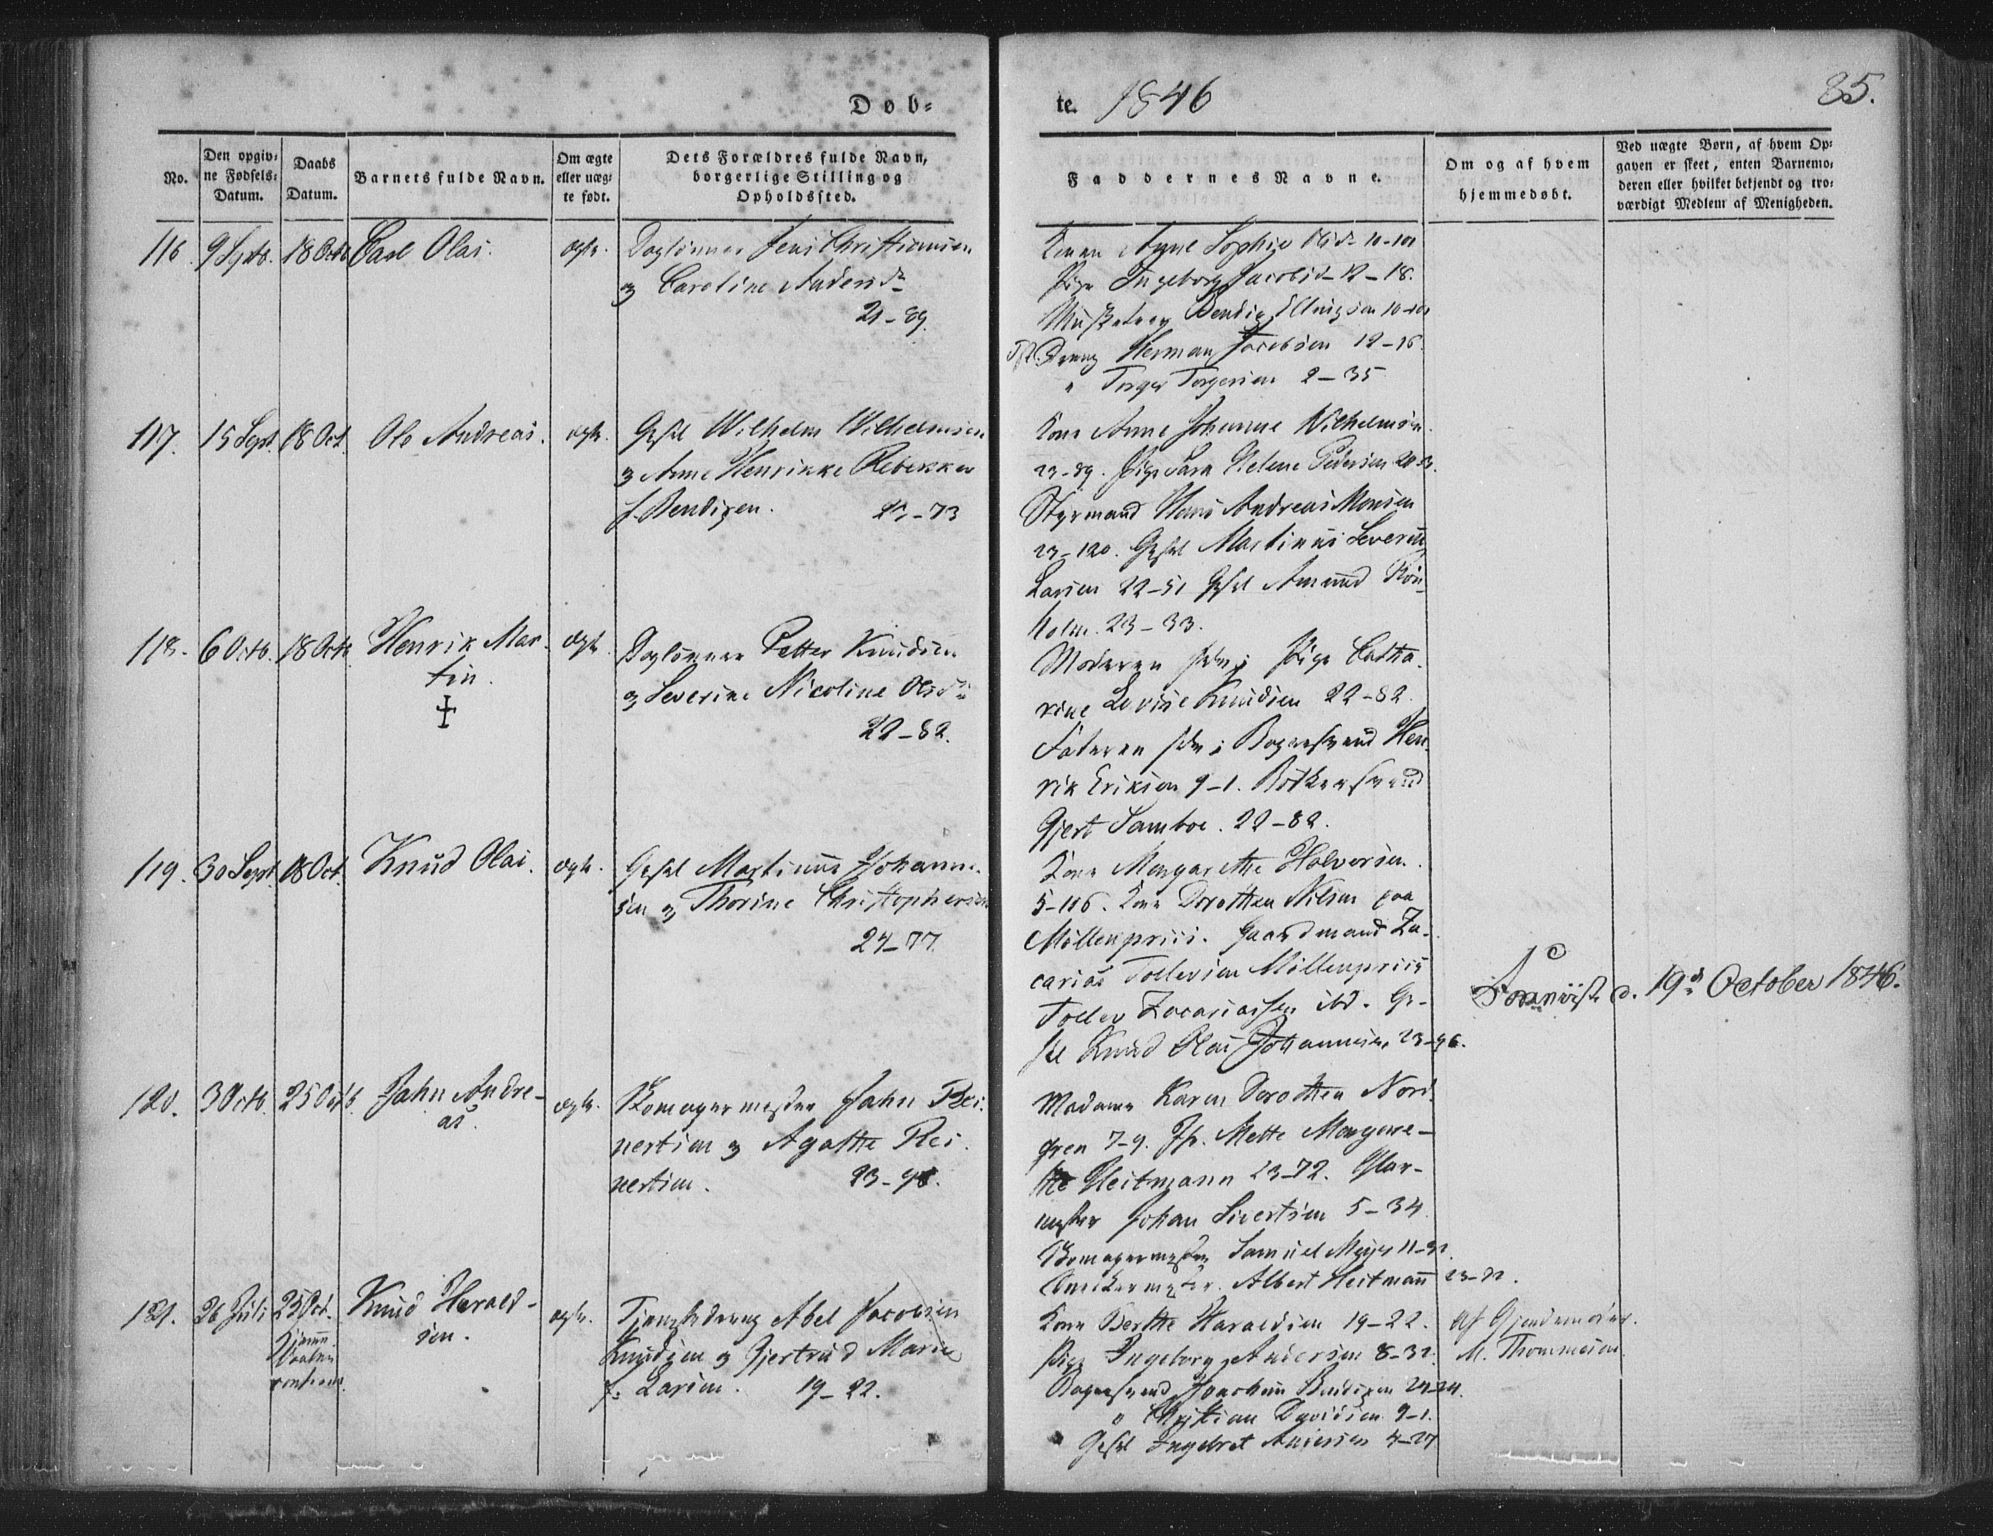 Døb=
te. 1846
85.
No.
Den opgiv=
ne Fødsels=
Datum.
Daabs
Datum.
Barnets fulde Navn.
Om ægte
eller uæg=
te født.
Dets Forældres fulde Navn,
borgerlige Stilling og
Opholdssted.
Faddernes Navne.
Om og af hvem
hjemmedøbt.
Ved uægte Børn, af hvem Op=
gaven er skeet, enten Barnemo=
deren eller hvilket bekjendt og tro=
værdigt Medlem af Menigheden.
116. 9 Septb. 18 Octb Carl Olai. ægte. Daglønner Jens Christiansen
og Caroline Andersd.
21-89.
Konen Anne Sophie Olsd. 10-101
Pige Ingeborg Jacobsd. 12-18.
Musketeer Bendix Ellingsen 10-101
Dreng Herman Jacobsen 12-16.
" Torger Torgersen 2-35
117. 15 Sept 18 Oct. Ole Andreas. ægte. Gesel Wilhelm Wilhelmsen
og Anne Henrikke Rebekka
f. Bendixen. -73
Kone Anne Johanne Wilhelmsen
23-89. Pige Sara Helene Pedersen
Styrmand Hans Andreas Monsen
23-120. Gesel Martinus Severin
Larsen 22-51 Gesel Amund Røn-
holm. 23-33.
118. 6 Octb. 18 Octb Henrik Mar-
tin.
ægte. Daglønner Petter Knudsen
og Severine Nicoline Olsd.
22-82.
Moderen selv; Pige Catha-
rine Lovise Knudsen 22-82.
Faderen selv; Bagersvend Hen-
rik Eriksen 9-1. Bødkersvend
Gjert Samboe. 22-82.
119. 30 Sept. 18 Oct. Knud Olai. ægte. Gesel Martinus Johanne-
sen og Thorine Christophersen
24-77.
Kone Margarethe Halvorsen.
5-116. Kone Dorothea Nilsen paa
Møllenpriis. Gaardmand Za-
carias Tollevsen Møllenpriis
Tollev Zacariassen ibd. Ge-
sel Knud Olai Johannesen 23-96.
d. 19d October 1846.
120. 3 Octb. 25 Octb. Jahn Andre-
as.
ægte. Skomagermester Jahn Rei-
nertsen og Agathe Rei-
nertsen. 23-98.
Madame Karen Dorothea Nord-
gren 7-9. Jfr. Mette Margare-
the Heitmann 23-72. Glar-
mester Johan Sivertsen 5-34
Skomagermester Samuel Meyer
Albert Heitmann 23-72.
121. 26 Juli 25 Oct. Knud Harald-
sen.
ægte. Tjenstedreng Abel Jacobsen
Knudsen og Gjertrud Marie
f. Larsen. 19-22.
Kone Berthe Haraldsen 19-22.
Pige Ingeborg Andersen 8-32.
Bagersvend Joachim Bendixen 24-24.
" Christian Davidsen 9-1.
Gesel Ingebret Andersen 4-27
af Gjordemoder
M. Thommesen.